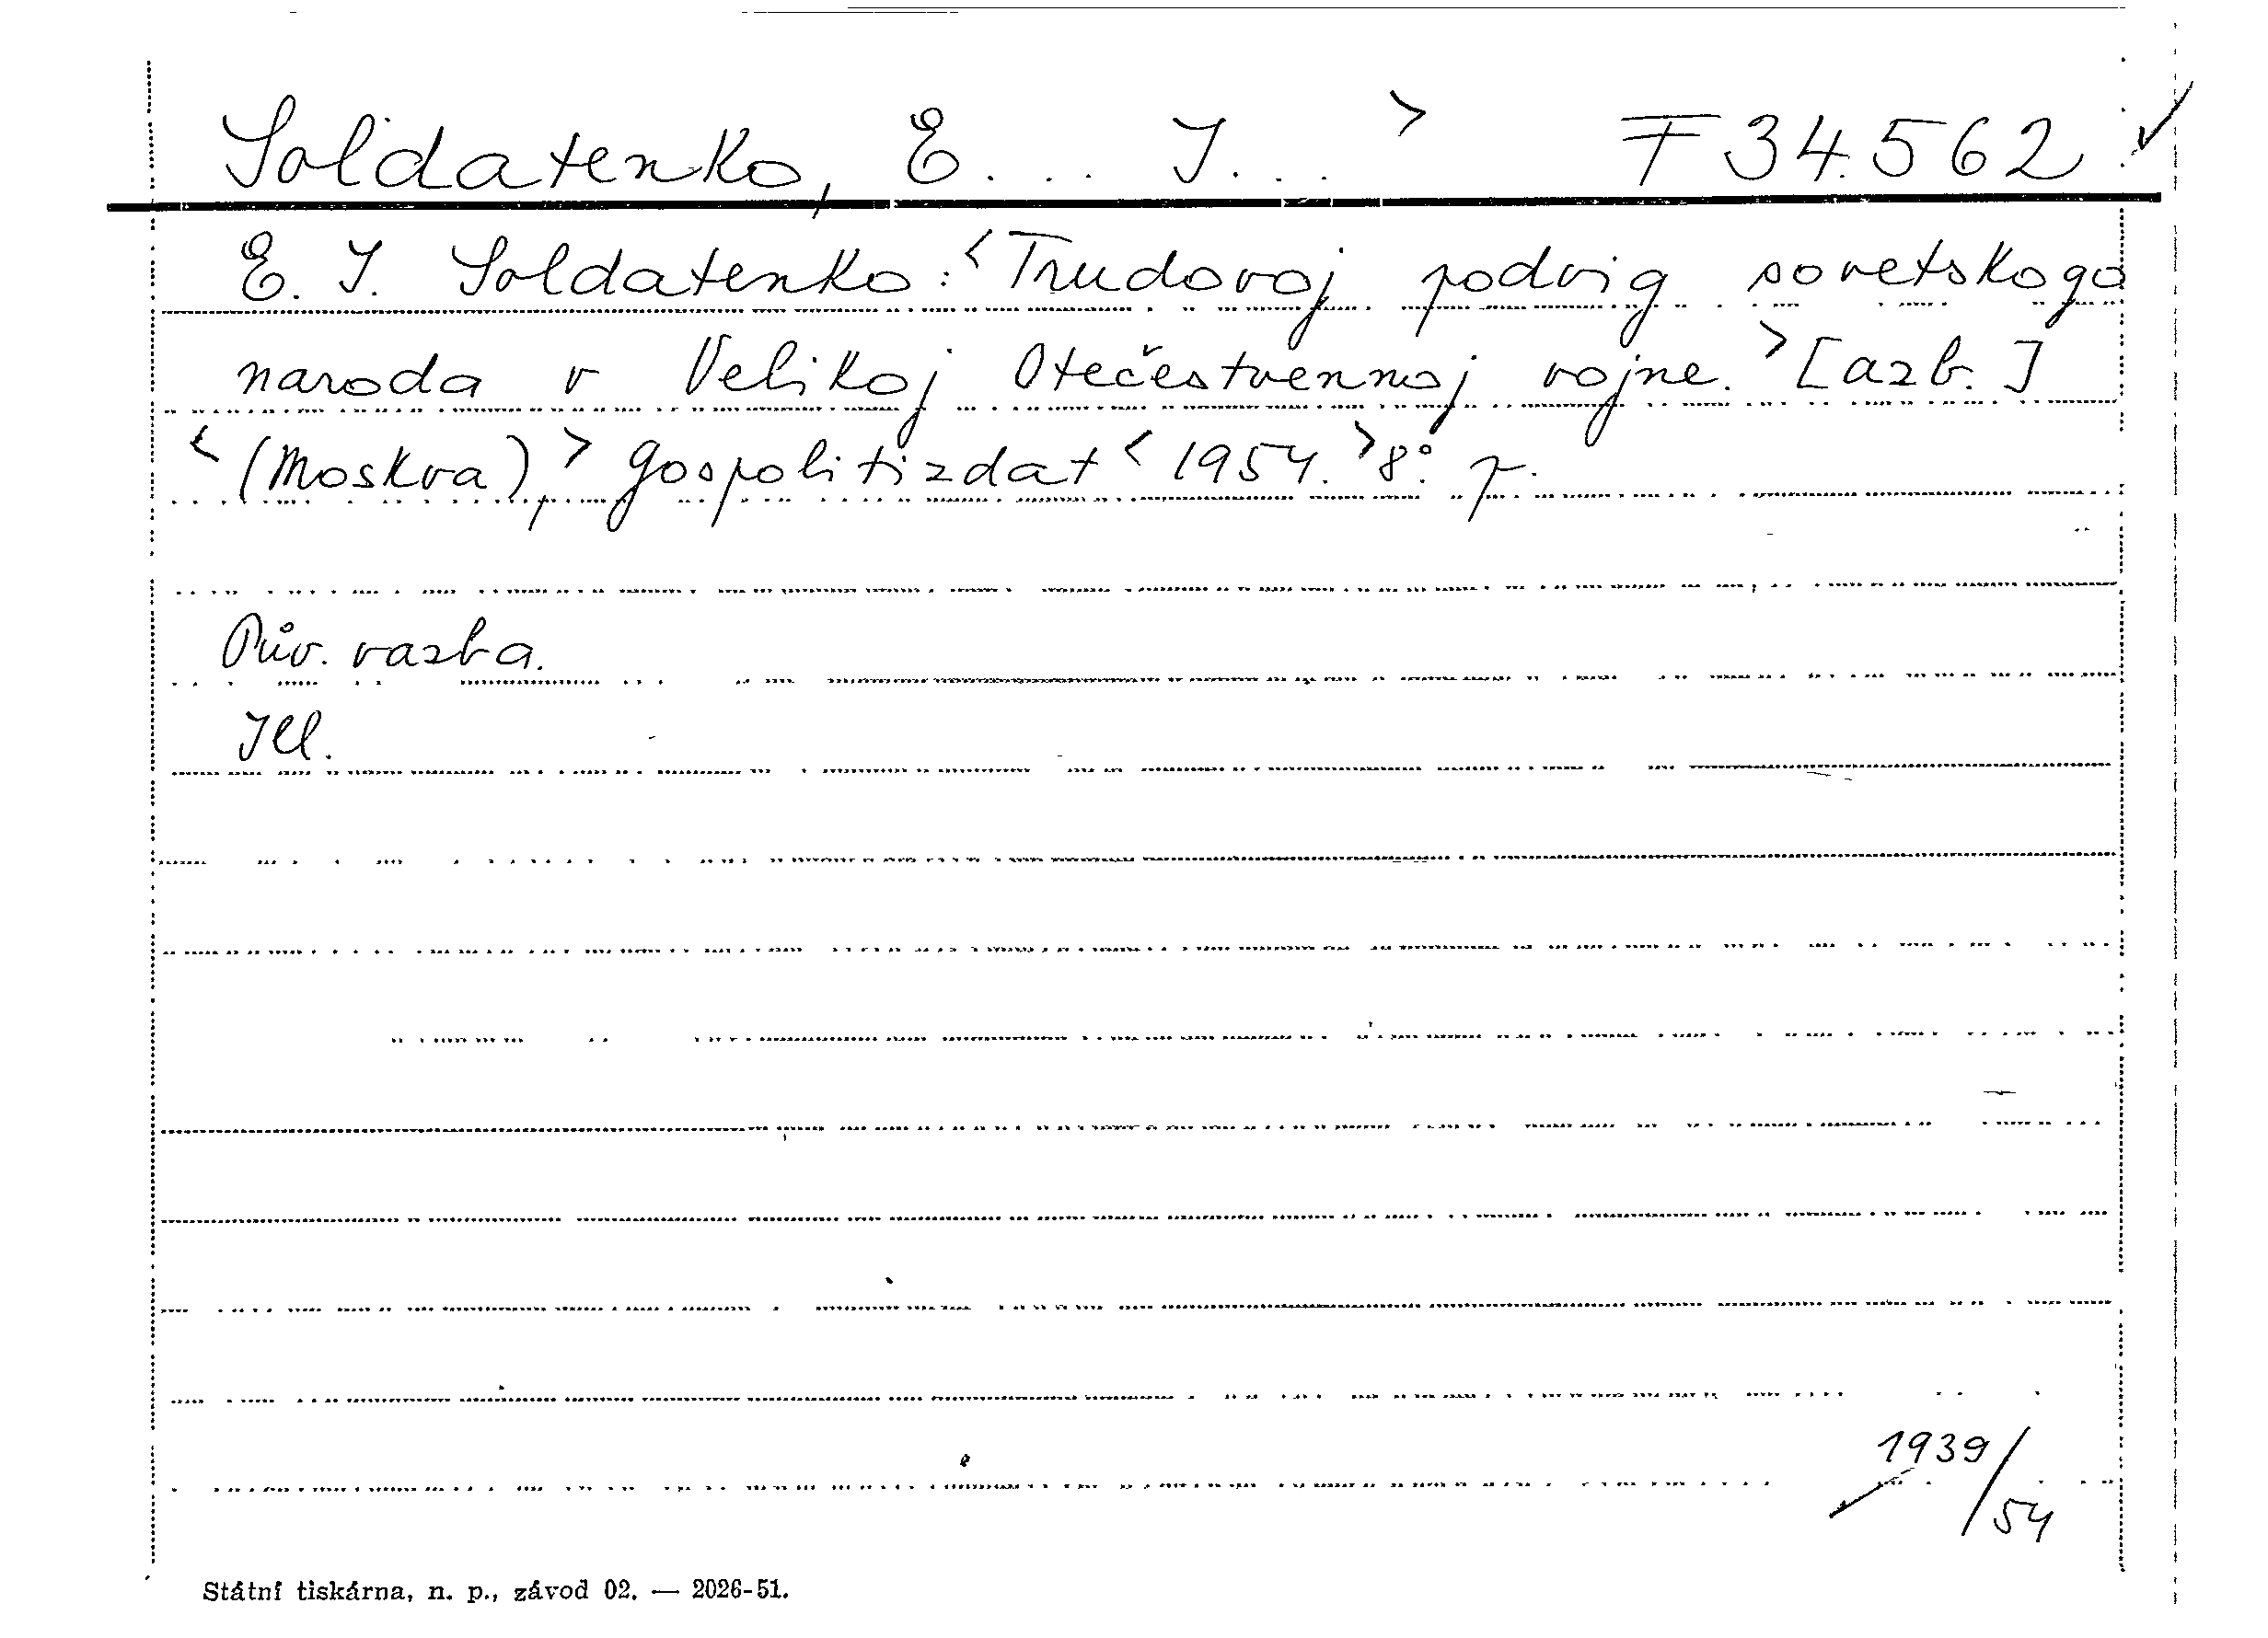 Soldatenko, E... I... > F 34.562 ✓
E. I. Soldatenko: <Trudovoj podvig sovetskogo
naroda v Velikoj Otečestvennoj vojne.> [azb.]
<(Moskva),> Gospolitizdat <1954.> 8°. p.
Pův. vazba.
Ill.
1939/54
Státní tiskárna, n. p., závod 02. — 2026-51.